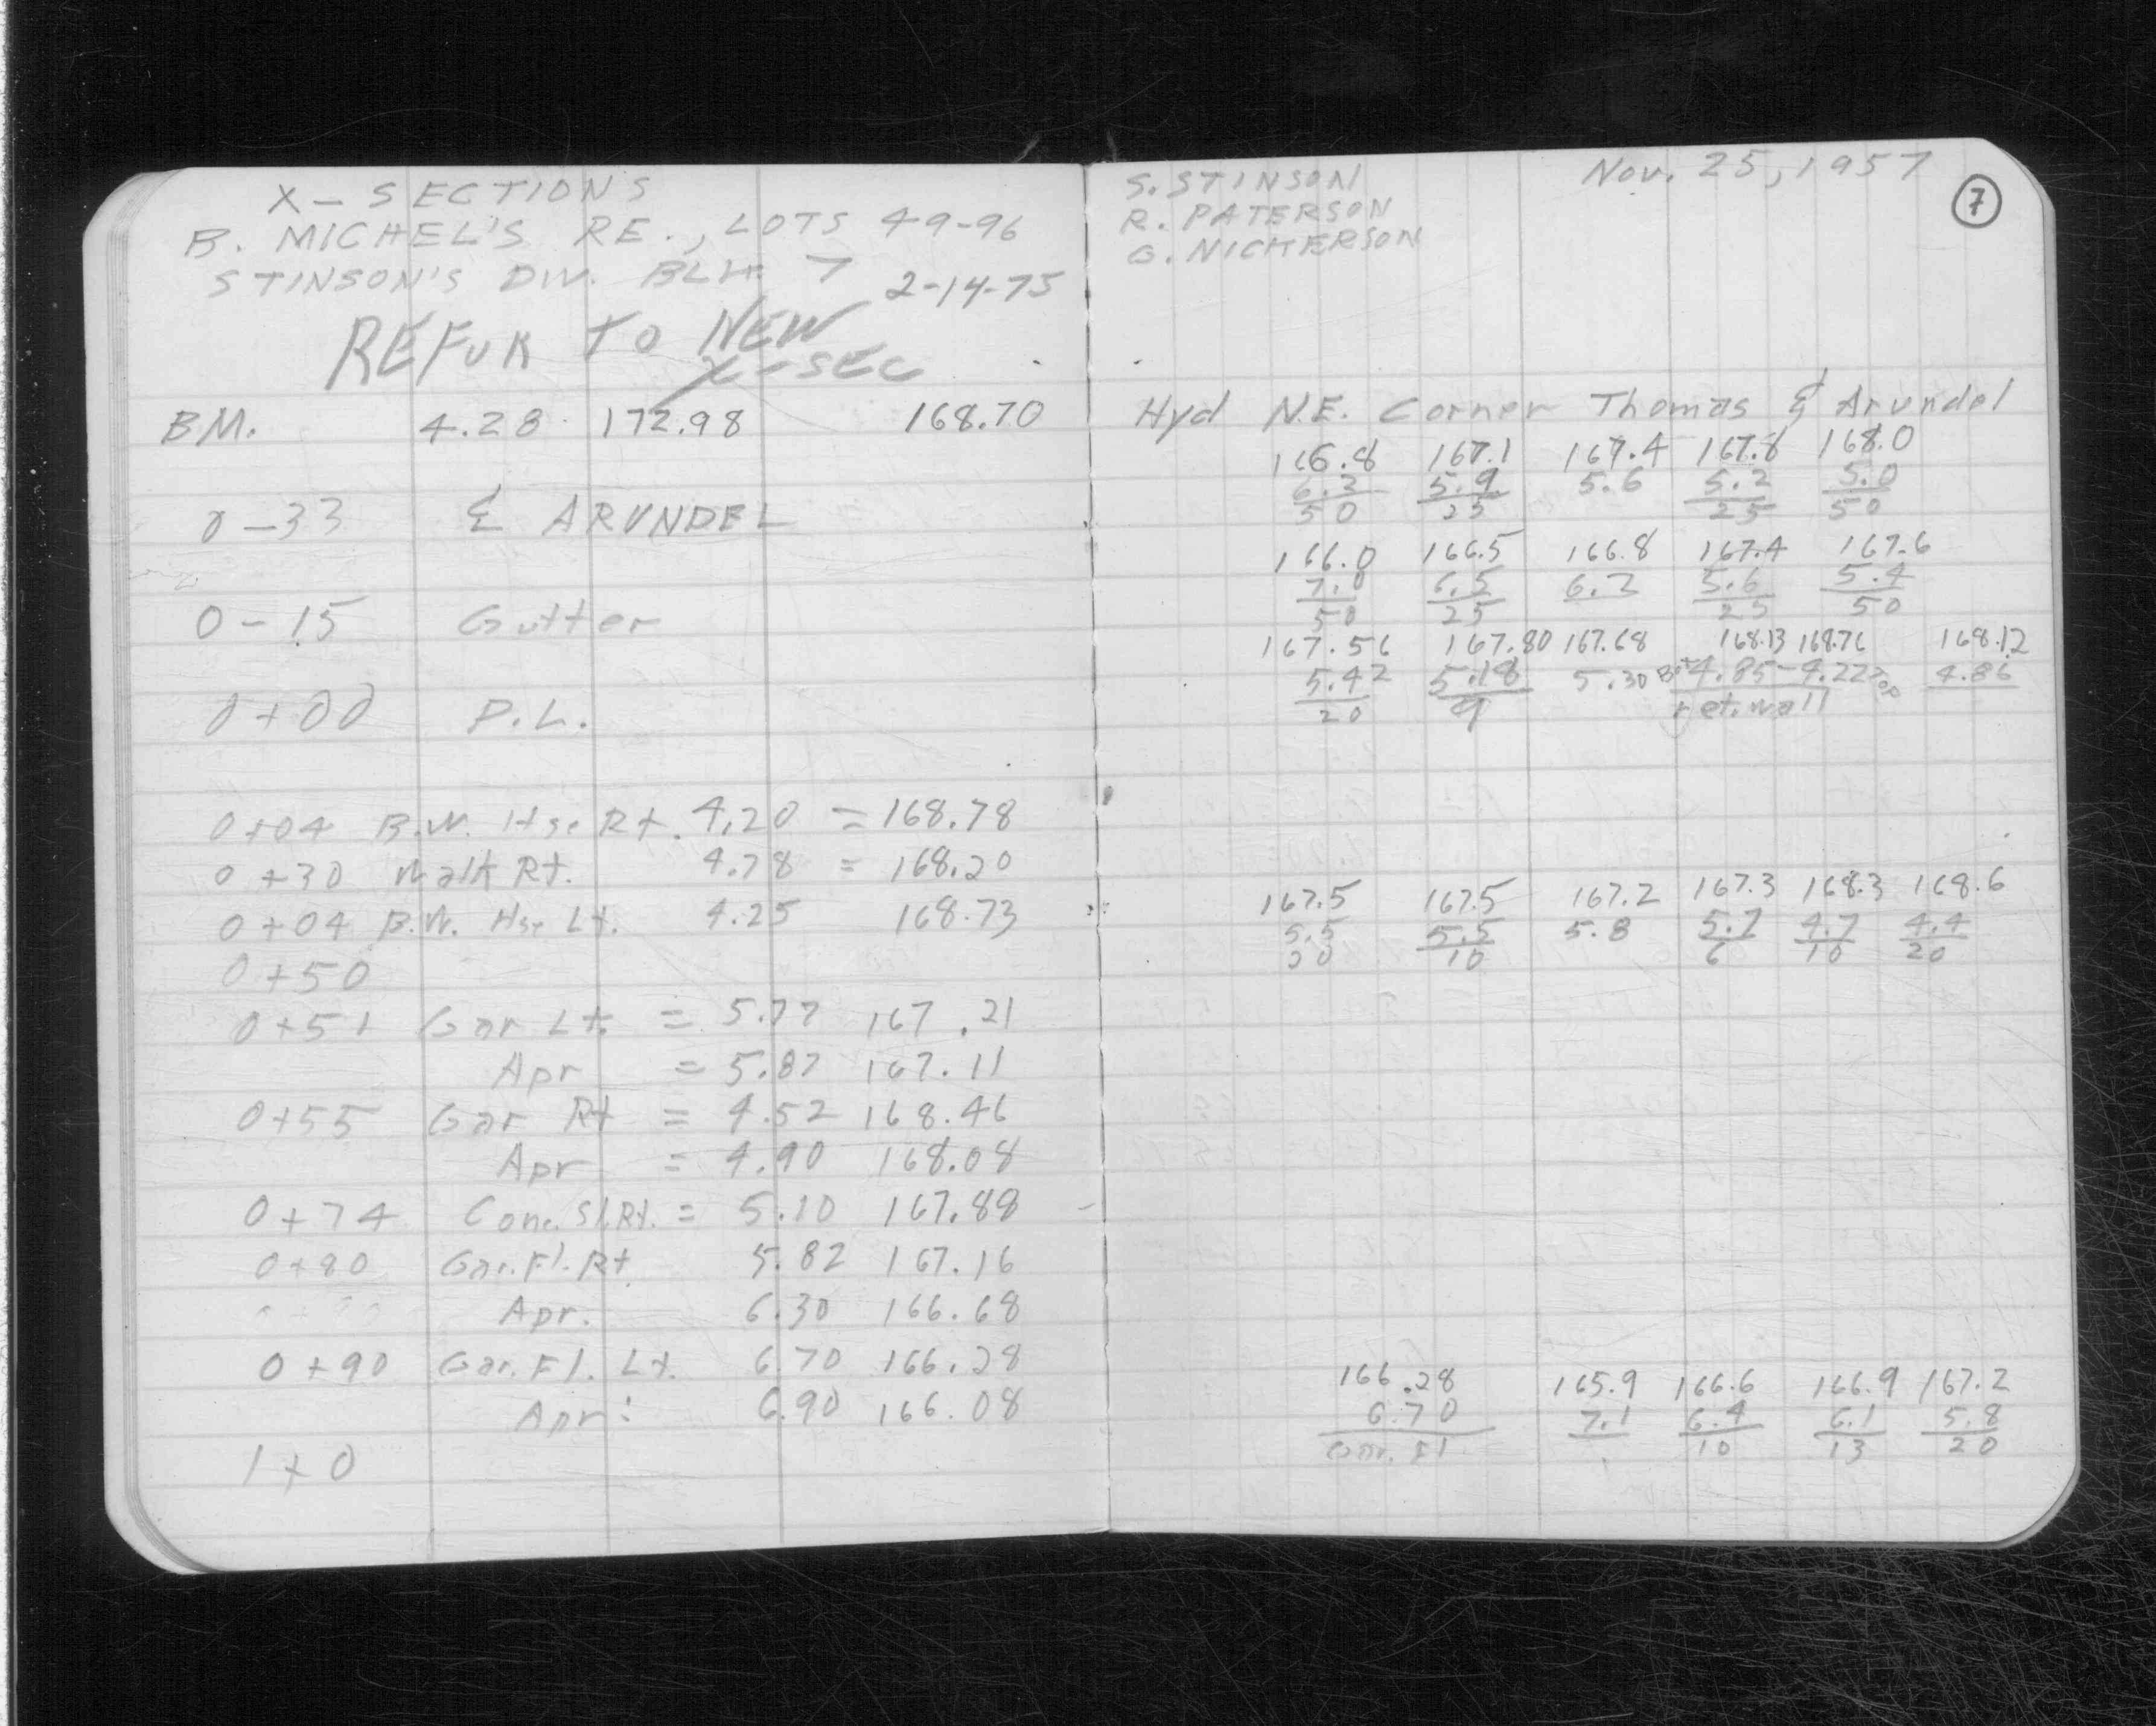 X - SECTIONS
B. MICHEL'S RE., LOTS 49-96
STINSON'S DIV. BLK 7
2-14-75
REFUR TO NEW
X-SEC
BM. 4.28 172.98 168.70
0-33 ℄ ARUNDEL
0-15 Gutter
0+00 P.L.
0+04 B.W. Hse Rt. 4.20 = 168.78
0+30 Walk Rt. 4.78 = 168.20
0+04 B.W. Hse Lt. 4.25 168.73
0+50
0+51 Gar Lt. = 5.77 167.21
Apr = 5.87 167.11
0+55 Gar Rt = 4.52 168.46
Apr = 4.90 168.08
0+74 Conc. Sl. Rt. = 5.10 167.88
0+80 Gar. Fl. Rt 5.82 167.16
Apr. 6.30 166.68
0+90 Gar. Fl. Lt. 6.70 166.28
Apr: 6.90 166.08
1+0
S. STINSON
R. PATERSON
G. NICKERSON
Nov. 25, 1957
7
Hyd N.E. Corner Thomas & Arundel
166.8 167.1 167.4 167.8 168.0
6.2 5.9 5.6 5.2 5.0
50 25 25 50
166.0 166.5 166.8 167.4 167.6
7.0 6.5 6.2 5.6 5.4
50 25 25 50
167.56 167.80 167.68 168.13 168.76 168.12
5.42 5.18 5.30 Bot 4.85-4.22 Top 4.86
20 9 ret. wall
167.5 167.5 167.2 167.3 168.3 168.6
5.5 5.5 5.8 5.7 4.7 4.4
20 10 6 10 20
166.28 165.9 166.6 166.9 167.2
6.70 7.1 6.4 6.1 5.8
Gar. Fl. 10 13 20